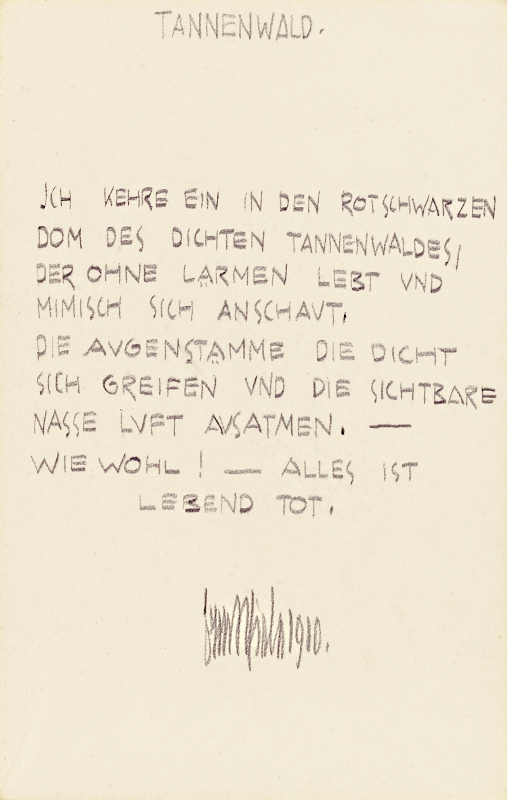 TANNENWALD.
ICH KEHRE EIN IN DEN ROTSCHWARZEN
DOM DES DICHTEN TANNENWALDES,
DER OHNE LÄRMEN LEBT VND
MIMISCH SICH ANSCHAVT.
DIE AVGENSTÄMME DIE DICHT
SICH GREIFEN VND DIE SICHTBARE
NASSE LVFT AVSATMEN. —
WIE WOHL! — ALLES IST
LEBEND TOT.
1910.